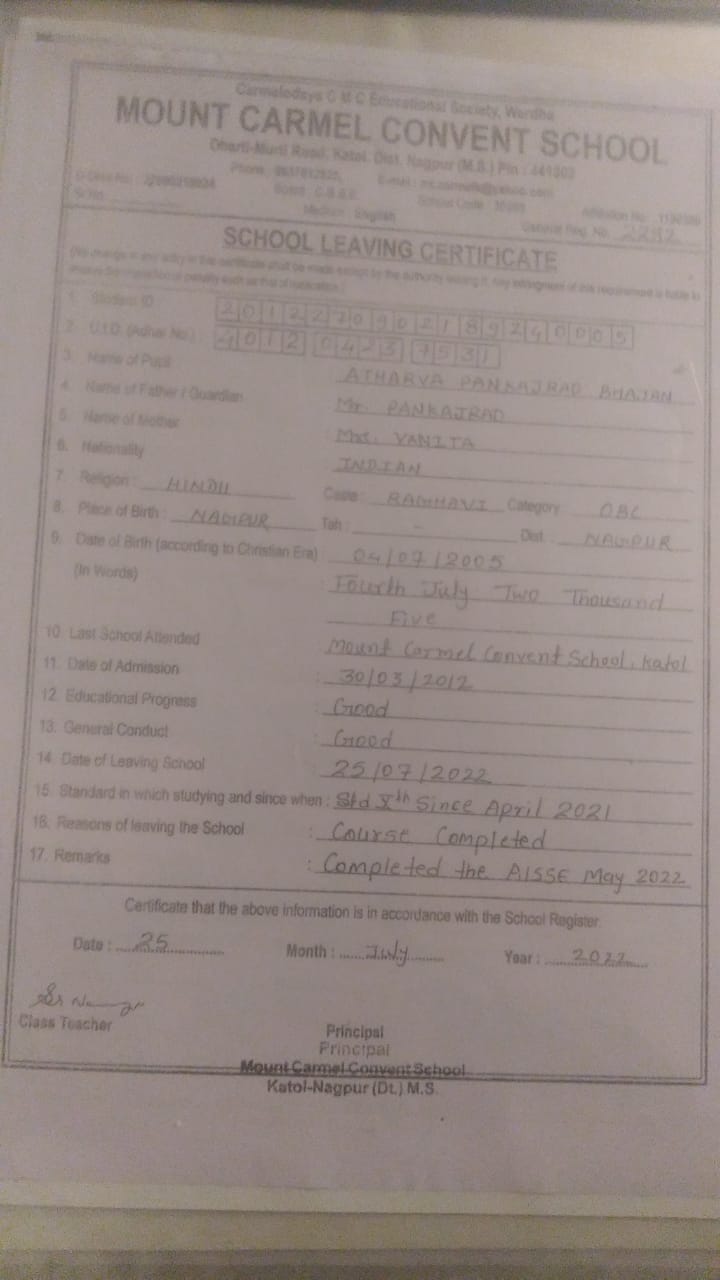 Carmelodaya C M C Educational Society, Wardha
MOUNT CARMEL CONVENT SCHOOL
Dharti-Murti Road, Katol, Dist. Nagpur (M.S.) Pin : 441302
Phone : E-mail :
Board : C.B.S.E. School Code :
Sr.No.
Medium : English
Affiliation No. :
General Reg. No.
SCHOOL LEAVING CERTIFICATE
(No change in any entry in this certificate shall be made except by the authority issuing it. Any infringement of this requirement is liable to
1. Student ID
2. U.I.D. (Adhar No.)
3. Name of Pupil ATHARVA PANKAJRAO BHAJAN
4. Name of Father / Guardian : Mr. PANKAJRAO
5. Name of Mother : Mrs. VANITA
6. Nationality : INDIAN
7. Religion : HINDU Caste : RAGHAVI Category OBC
8. Place of Birth : NAGPUR Tah : - Dist. NAGPUR
9. Date of Birth (according to Christian Era) 04/07/2005
(In Words) : Fourth July Two Thousand
Five
10. Last School Attended : Mount Carmel Convent School, Katol
11. Date of Admission : 30/03/2012
12. Educational Progress : Good
13. General Conduct : Good
14. Date of Leaving School : 25/07/2022
15. Standard in which studying and since when : Std Xth Since April 2021
16. Reasons of leaving the School : Course Completed
17. Remarks : Completed the AISSE May 2022
Certificate that the above information is in accordance with the School Register.
Date : 25 Month : July Year : 2022
Class Teacher
Principal
Principal
Mount Carmel Convent School
Katol-Nagpur (Dt.) M.S.